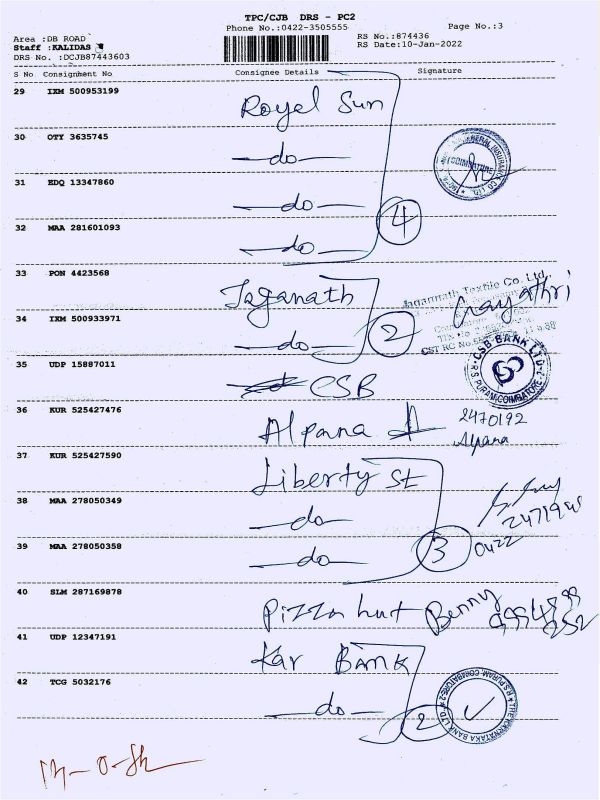 TPC/CJB DRS - PC2
Phone No.:0422-3505555
Page No.:3
Area :DB ROAD
RS No.:874436
Staff :KALIDAS
RS Date:10-Jan-2022
DRS No. :DCJB87443603
S No Consignment No Consignee Details Signature
29 IXM 500953199 Royel Sun
30 OTY 3635745 -do-
31 EDQ 13347860 -do-
4
32 MAA 281601093 -do-
33 PON 4423568 Jaganath
Jagannath Textile Co. Ltd.
Gayathri
34 IXM 500933971 -do- 2
CSB BANK LTD
R.S. PURAM, COIMBATORE-2
35 UDP 15887011 CSB
36 KUR 525427476 Alpana
2470192
Alpana
37 KUR 525427590 Liberty St
38 MAA 278050349 -do-
39 MAA 278050358 -do- 3
0422
40 SLM 287169878 Pizza hut Benny
41 UDP 12347191 Kar BANK
42 TCG 5032176 -do- 2
THE KARNATAKA BANK LTD
R.S. PURAM, COIMBATORE-2